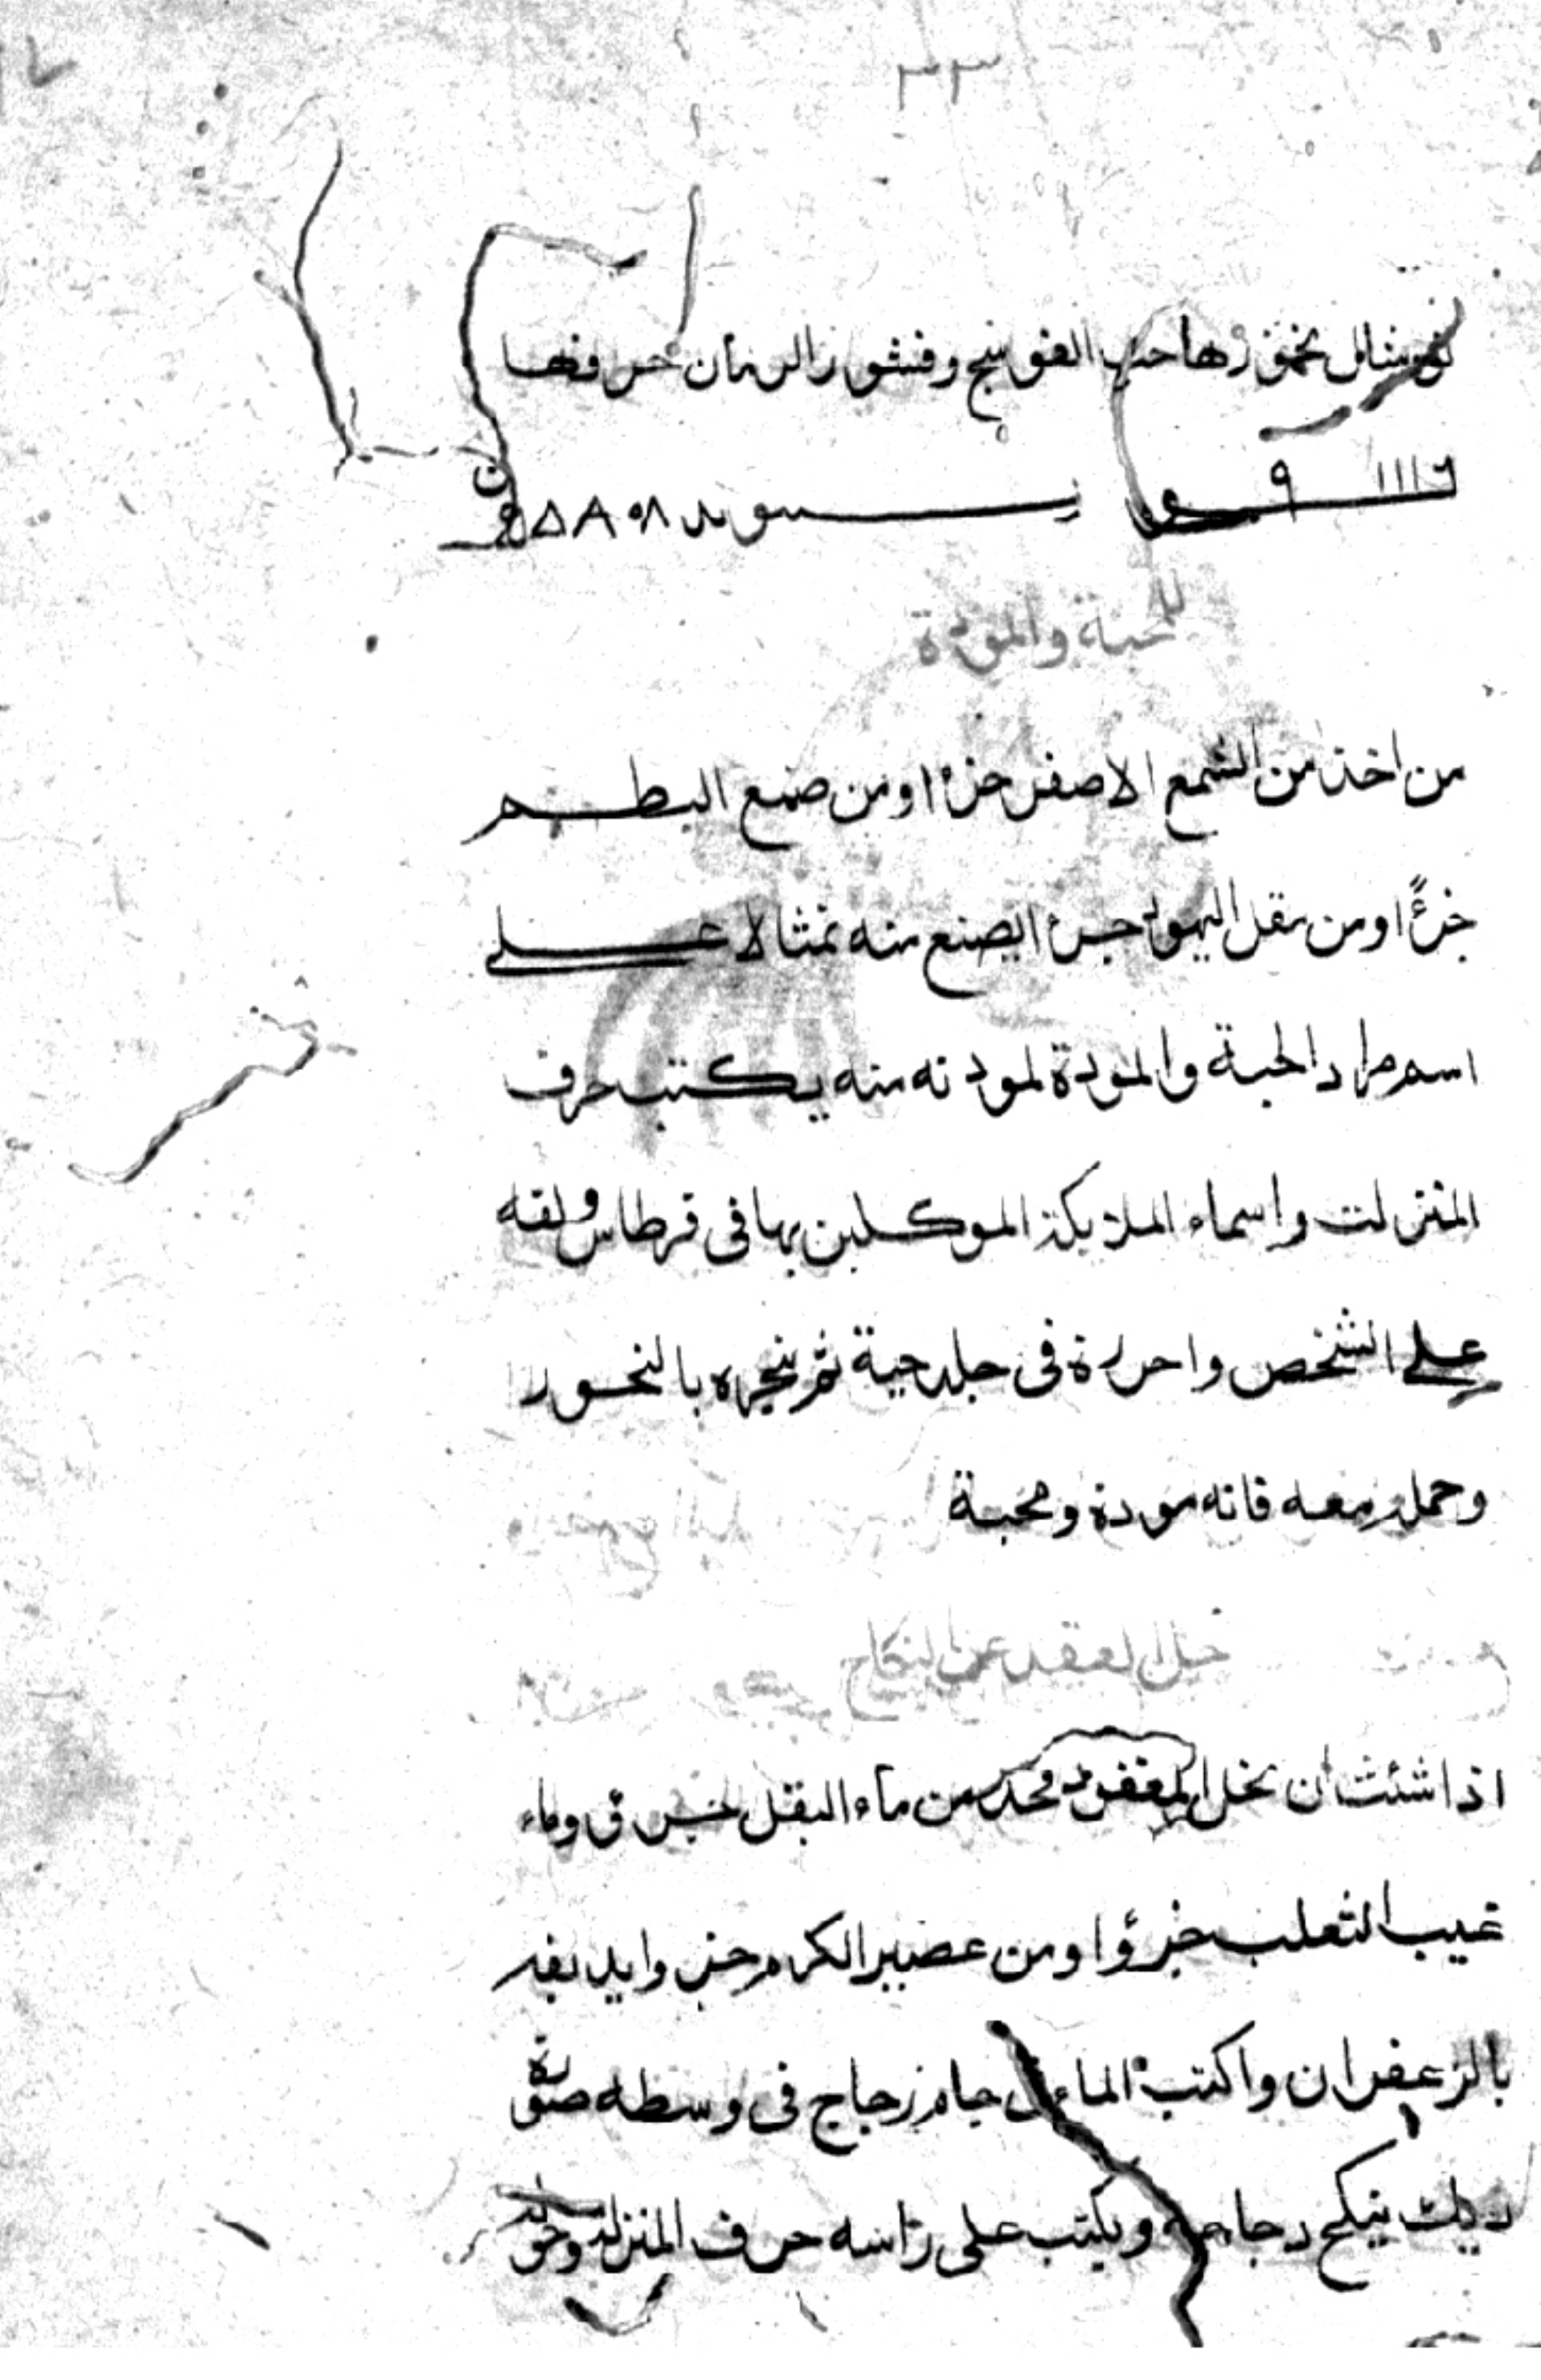 ٣٣
وقشور الرمان حرفها
للمحبة والمودة
من اخذ من الشمع الاصفر جزءا ومن صمغ البطم
جزءًا ومن مقل اليهود جزءا يصنع منه تمثالا على
اسم مراد المحبة والمودة لمودته منه يكتب حرف
المنزلت واسماء الملايكة الموكلين بها في قرطاس ولفه
على الشخص واحرزه في جلد حية ثم بخره بالبخور
وحمله معه فانه مودة ومحبة
حل العقد عن النكاح
اذا شئت ان تحل المعقود فخد من ماء البقل جزؤ وماء
عيب الثعلب جزؤا ومن عصير الكرم جزوا يديفه
بالزعفران واكتب الماء جام زجاج في وسطه صورة
ديك ينكح دجاجه ويكتب على راسه حرف المنزلت وحو